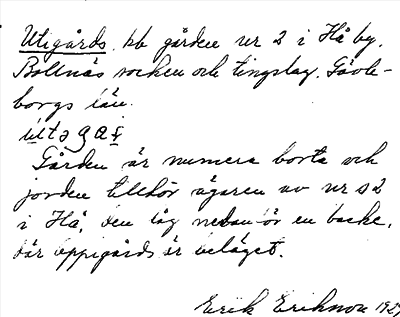 Utigårds, bb gården nr 2 i Hå by,
Bollnäs socken och tingslag, Gävle-
borgs län.
Gården är numera borta och
jorden tillhör ägaren av nr 2
i Hå, den låg nedanför en backe,
där oppigårds är beläget.
Erik Erikson